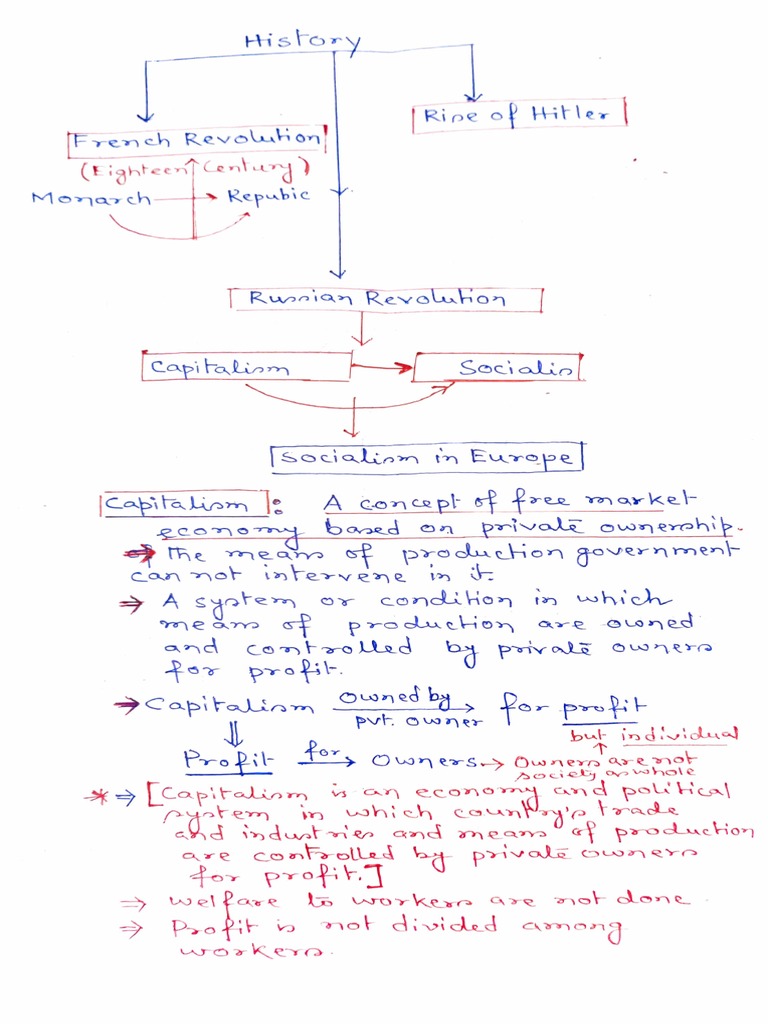 History
French Revolution
Rise of Hitler
(Eighteen Century)
Monarch → Repubic
Russian Revolution
Capitalism → Socialis
Socialism in Europe
Capitalism : A concept of free market
economy based on private ownership.
of the means of production government
can not intervene in it.
⇒ A system or condition in which
means of production are owned
and controlled by private owners
for profit.
→ Capitalism Owned by pvt. owner → for profit
but individual
⇓
Profit for → Owners → Owners are not
society as whole
* ⇒ [Capitalism is an economy and political
system in which country's trade
and industries and means of production
are controlled by private owners
for profit.]
⇒ welfare to workers are not done.
⇒ Profit is not divided among
workers.